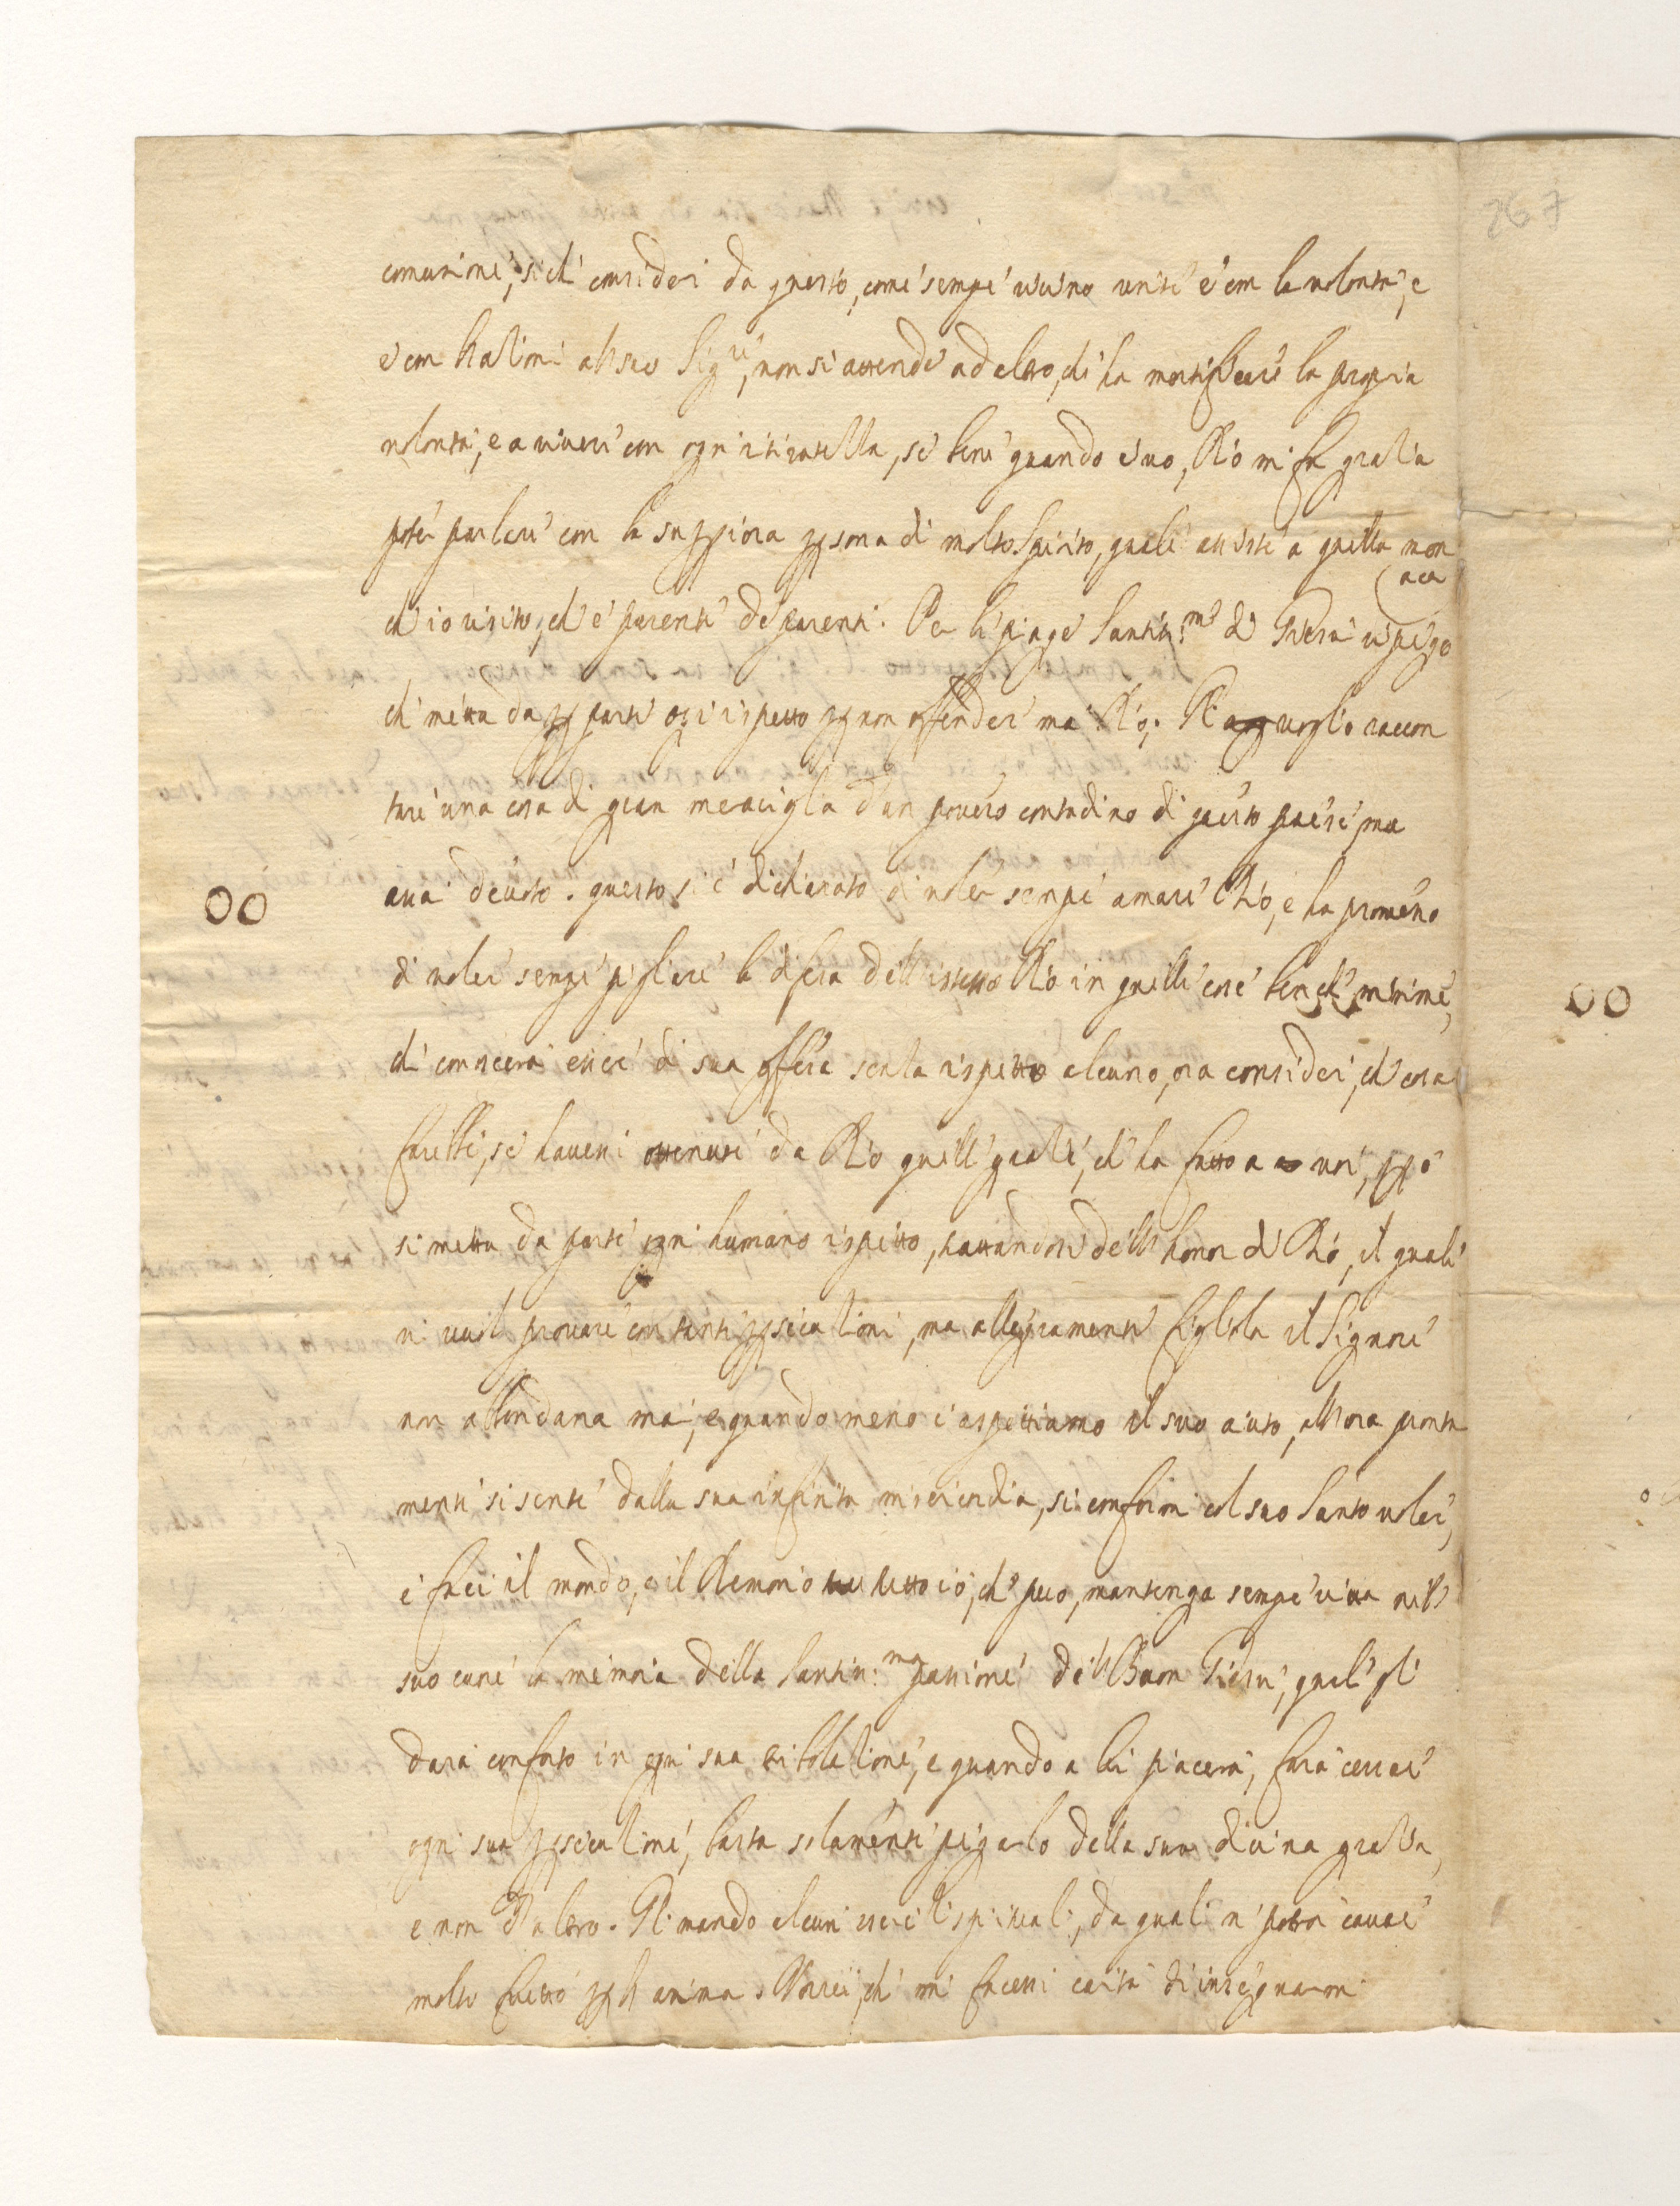 267
comunione, si che consideri da questo, come sempre vivino unite e con la volontà, e
e con l'attioni al suo Sig.re, non si attende ad altro, che ha mortificare la propria
volontà, e a vivere con ogni ritiratella, se bene quando è suo, Dio mi fa gratia
poter parlare con la suppriora persona di molto spirito, quale assiste a quella mon
aca
ch'io visito, ch'è parente de parenti. Per le piage Santiss:me di Giesù vi prego
che metta da parte ogni rispetto per non offender mai Dio. Gli voglio raccon
tare una cosa di gran meraviglia d'un povero contadino di questo paese ma
assai devoto. questo si è dichiarato di voler sempre amare Dio, e ha promesso
di voler sempre pigliare la difesa dell'istesso Dio in quelle cose benche minime,
che conoscerà essere di sua offesa senza rispetto alcuno, ora consideri, che cosa
faresti, se havessi ottenute da Dio quelle gratie, che ha fatto a voi, però
si metta da parte ogni humano rispetto, trattandosi dell'honor di Dio, il quale
vi vuol provare con tante persecutioni, ma allegramente figliola il Signore
non abbandona mai, e quando meno ci aspettiamo il suo aiuto, allora pronta
mente si sente dalla sua infinita misericordia, si conformi col suo Santo voler,
e facci il mondo, e il Demonio tutto ciò, che può, mantenga sempre viva nel
suo cuore la memoria della Santiss:ma passione del Buon Giesù, qual gli
darà conforto in ogni sua tribolatione, e quando a lui piacerà, farà cessare
ogni sua persecutione, basta solamente pregarlo della sua divina gratia,
e non d'altro. Gli mando alcuni esercitii spirituali, da quali ne potrà cavare
molto frutto per l'anima. Vorrei, che mi facessi carità di insegnarmi